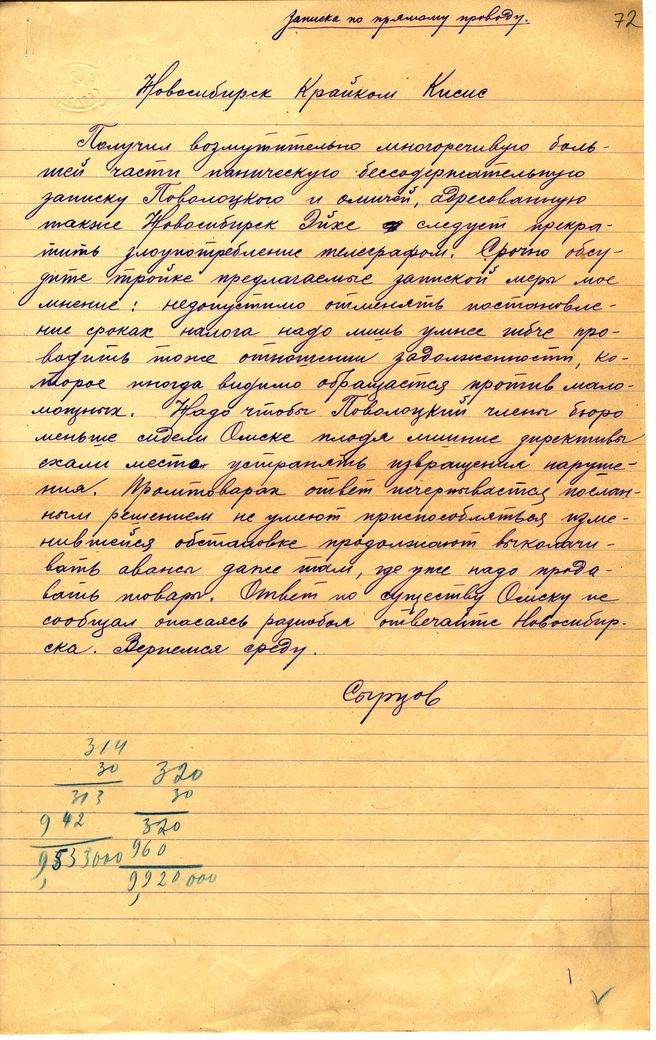 Записка по прямому проводу.
72
Новосибирск Крайком Кисис
Получил возмутительно многоречивую боль-
шей части паническую бессодержательную
записку Поволоцкого и омичей, адресованную
также Новосибирск Эйхе следует прекра-
тить злоупотребление телеграфом. Срочно обсу-
дите тройке предлагаемые запиской меры мое
мнение: недопустимо отменять постановле-
ние сроках налога надо лишь умнее гибче про-
водить тоже отношении задолженности, ко-
торое иногда видимо обращается против мало-
мощных. Надо чтобы Поволоцкий члены бюро
меньше сидели Омске плодя лишние директивы
ехали места устранять извращения наруше-
ния. Промтоварах ответ исчерпывается послан-
ным решением не умеют приспособляться изме-
нившейся обстановке продолжают выколачи-
вать авансы даже там, где уже надо прода-
вать товары. Ответ по существу Омску не
сообщал опасаясь разнобоя отвечайте Новосибир-
ска. Вернемся среду.
Сырцов
314
30
313
942
9,533000
320
30
320
960
9,920000